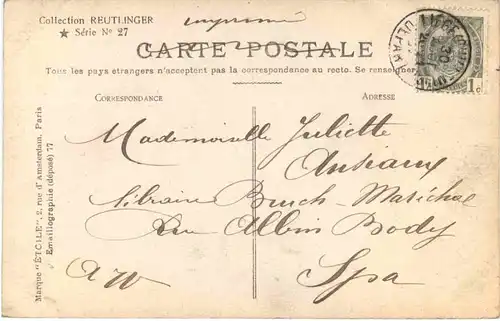 Collection REUTLINGER
★ Série Nº 27
imprimé
CARTE POSTALE
Tous les pays étrangers n'acceptent pas la correspondance au recto. Se renseigner
CORRESPONDANCE
ADRESSE
Mademoiselle Juliette
Ansiaux
libraire Bruch-Maréchal
Rue Albin Body
Spa
Marque "ÉTOILE", 2, rue d'Amsterdam, Paris
Emaillographie (déposé) 77
1c